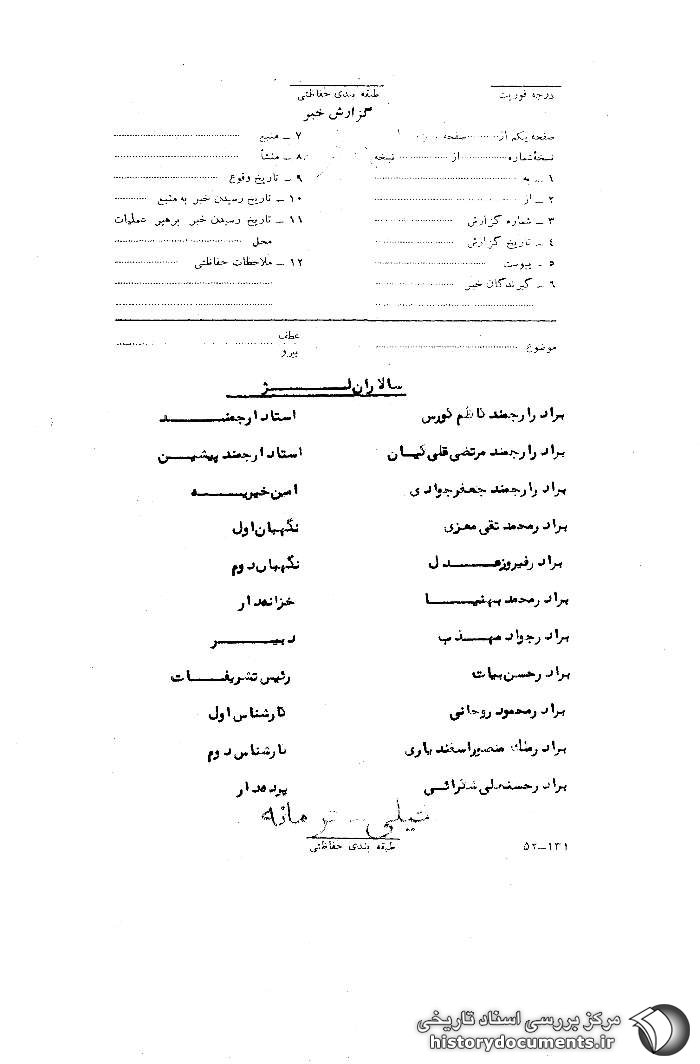 درجه فوریت
طبقه بندی حفاظتی
گزارش خبر
صفحه یکم از صفحه
نسخهٔ شماره از نسخه
۱ ـ به
۲ ـ از
۳ ـ شماره گزارش
۴ ـ تاریخ گزارش
۵ ـ پیوست
۶ ـ گیرندگان خبر
۷ ـ منبع
۸ ـ منشأ
۹ ـ تاریخ وقوع
۱۰ ـ تاریخ رسیدن خبر به منبع
۱۱ ـ تاریخ رسیدن خبر برهبر عملیات
محل
۱۲ ـ ملاحظات حفاظتی
موضوع
عطف
پیرو
سالاران لژ
برادر ارجمند ناظم نورس استاد ارجمند
برادر ارجمند مرتضی قلی کیان استاد ارجمند پیشین
برادر ارجمند جعفر جوادی امین خیریه
برادر محمد تقی معزی نگهبان اول
برادر فیروز عدل نگهبان دوم
برادر محمد بهنیا خزانه‌دار
برادر جواد مهذب دبیر
برادر حسن بیات رئیس تشریفات
برادر محمود روحانی کارشناس اول
برادر ملک منصور اسفندیاری کارشناس دوم
برادر حسنعلی پرده‌دار
خیلی محرمانه
طبقه بندی حفاظتی
۵۲-۱۳۱
مرکز بررسی اسناد تاریخی
historydocuments.ir